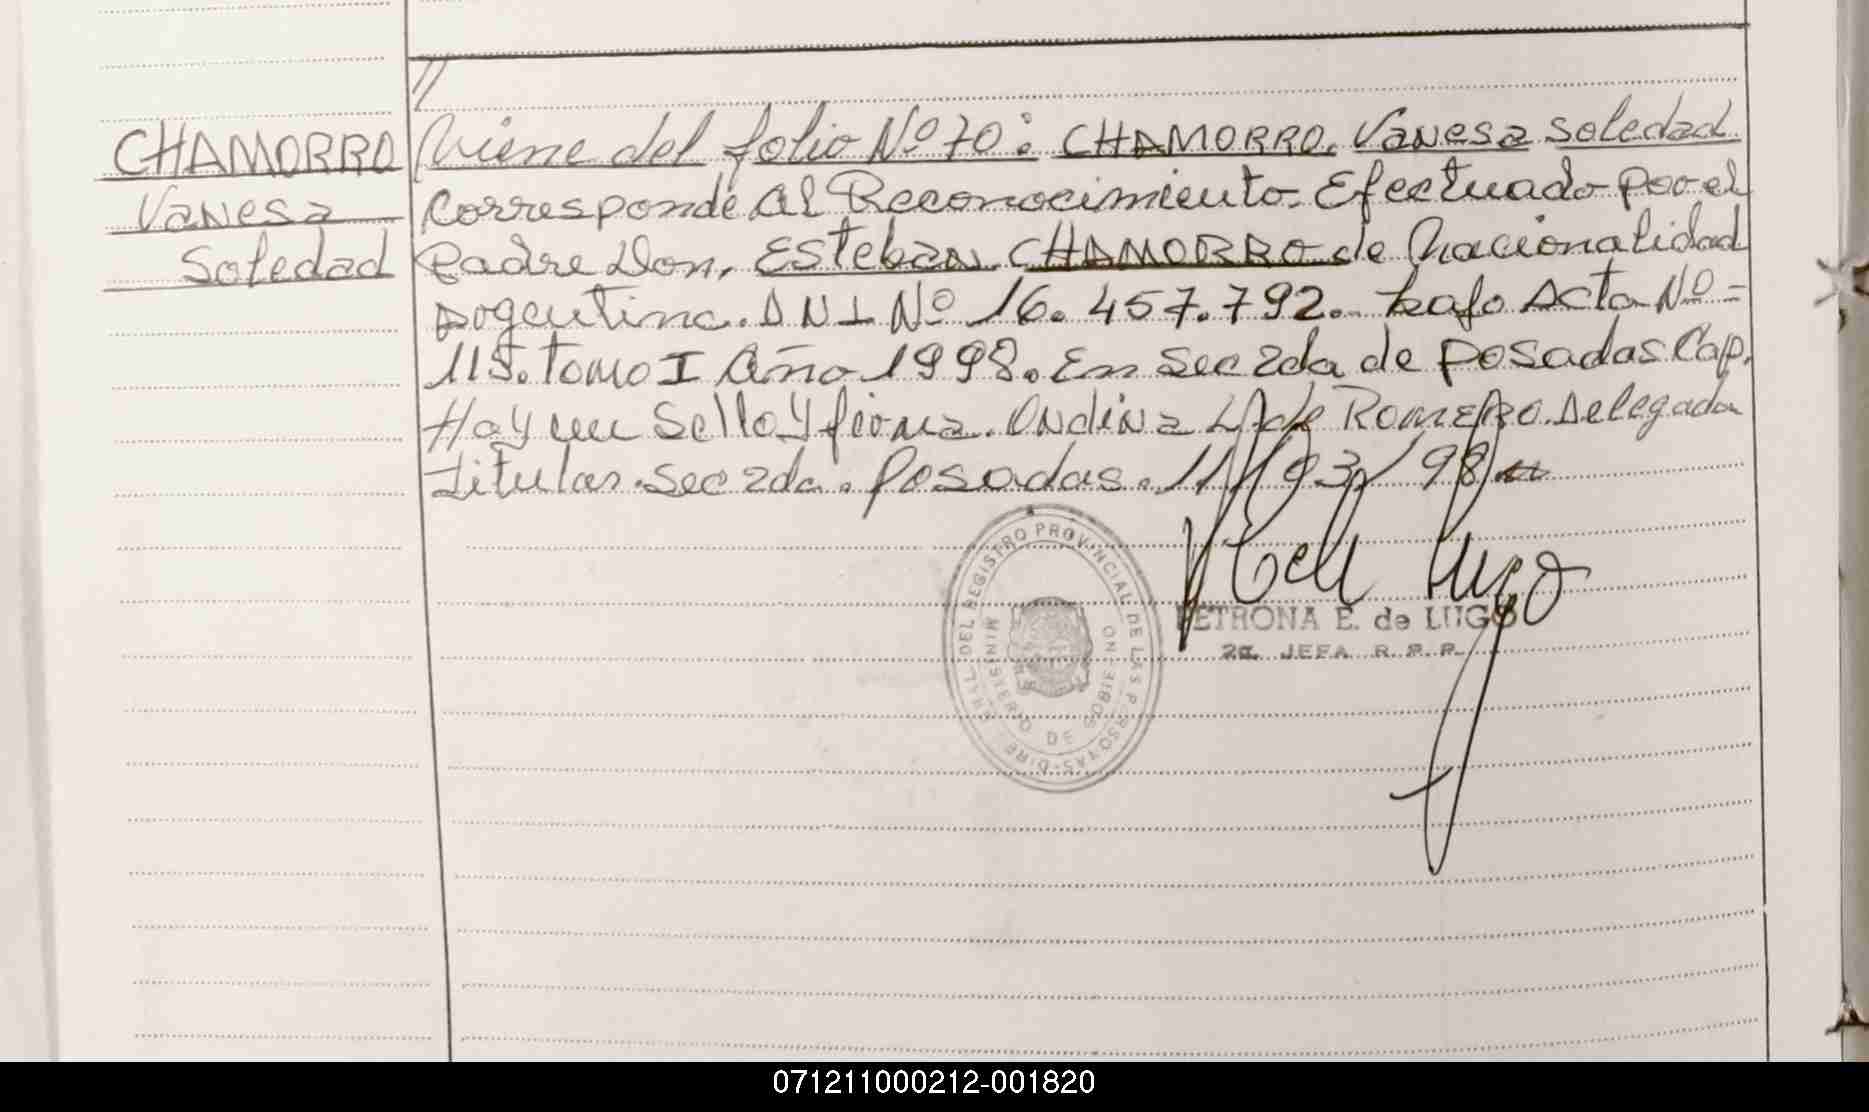 //
CHAMORRO
Vanesa
Soledad
Viene del folio Nº 70: CHAMORRO, Vanesa Soledad
Corresponde al Reconocimiento. Efectuado por el
Padre Don, Esteban CHAMORRO de Nacionalidad
Argentina. DNI Nº 16.457.792. bajo Acta Nº-
115. Tomo I Año 1998. En Sec 2da de Posadas Cap.
Hay un Sello y firma. Ondina L. de ROMERO. Delegada
titular. Sec 2da. Posadas. 11/03/98
DEL REGISTRO PROVINCIAL DE LAS PERSONAS-DIRE GRAL
MINISTERIO DE GOBIERNO
PETRONA E. de LUGO
2a. JEFA R.P.P.
071211000212-001820